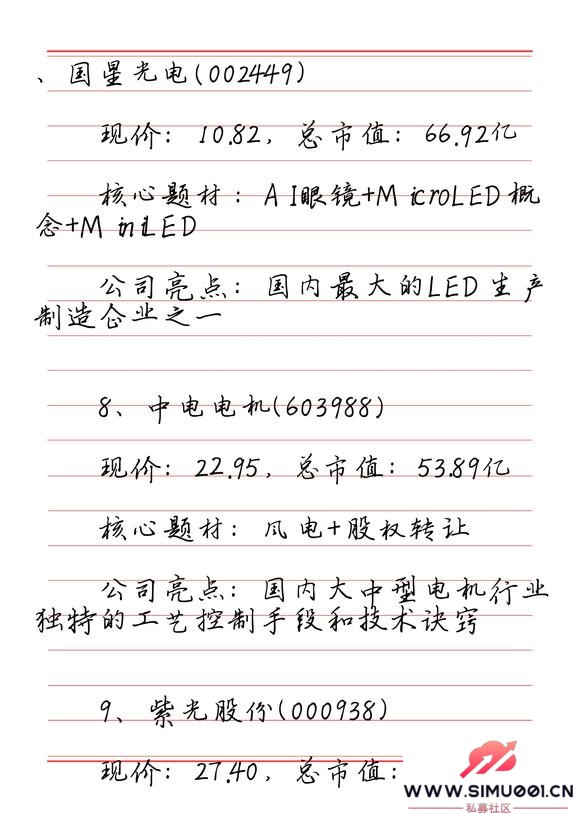 、国星光电(002449)
现价：10.82，总市值：66.92亿
核心题材：AI眼镜+MicroLED概
念+MiniLED
公司亮点：国内最大的LED生产
制造企业之一
8、中电电机(603988)
现价：22.95，总市值：53.89亿
核心题材：风电+股权转让
公司亮点：国内大中型电机行业
独特的工艺控制手段和技术诀窍
9、紫光股份(000938)
现价：27.40，总市值：
WWW.SIMU001.CN
私募社区